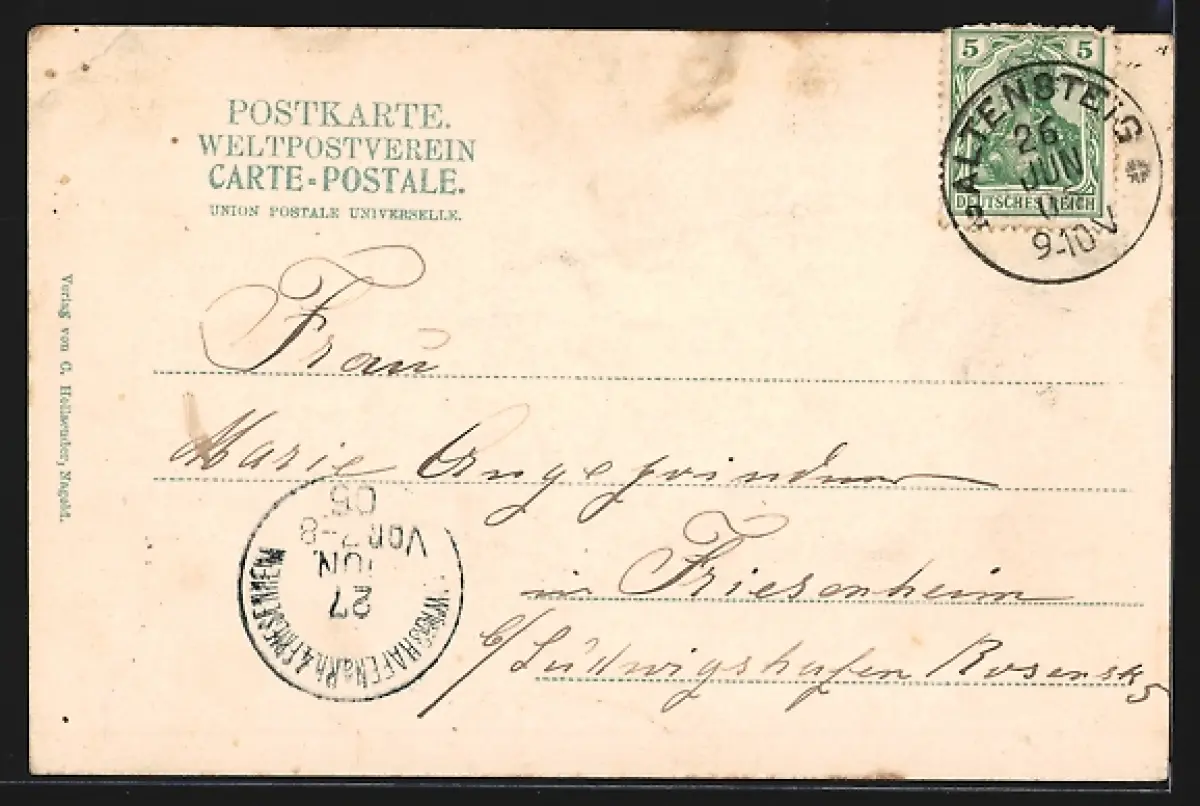 POSTKARTE.
WELTPOSTVEREIN
CARTE=POSTALE.
UNION POSTALE UNIVERSELLE.
5 5
DEUTSCHES REICH
ALTENSTEIG
26
JUN
9-10V
Verlag von G. Hollaender, Nagold.
Frau
Marie
in Friesenheim
b/ Ludwigshafen Rosenstr 5
FRIESENHEIM
27
JUN.
Vor. 7-8
05